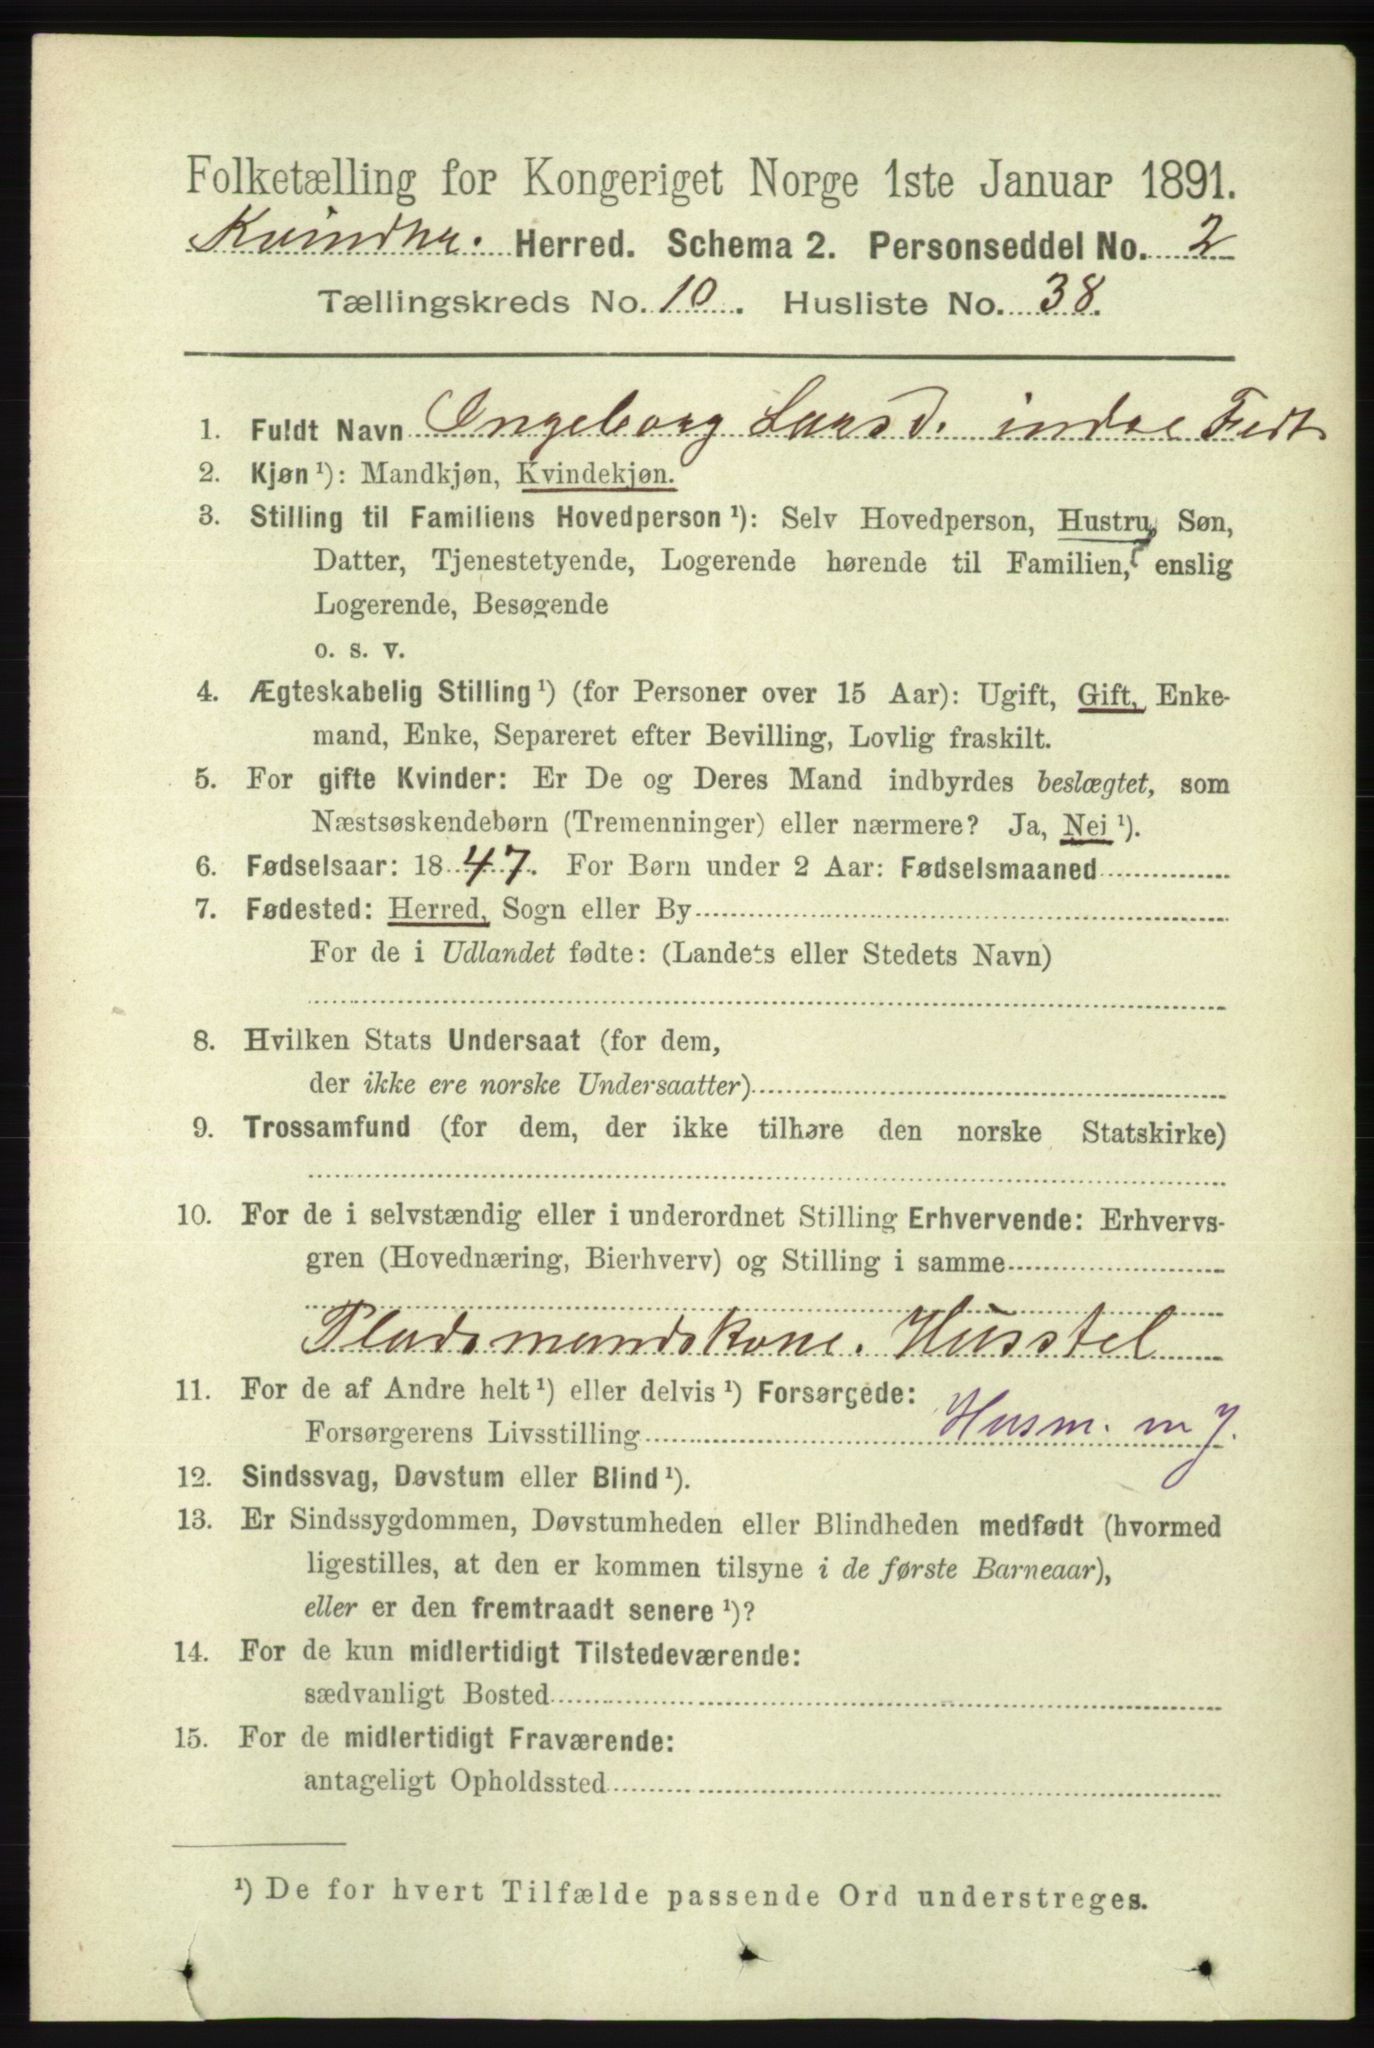 Folketælling for Kongeriget Norge 1ste Januar 1891.
Kvindhr. Herred. Schema 2. Personseddel No. 2
Tællingskreds No. 10. Husliste No. 38.
1. Fuldt Navn Ingeborg Larsd. indre Fedt
2. Kjøn ¹): Mandkjøn, Kvindekjøn.
3. Stilling til Familiens Hovedperson ¹): Selv Hovedperson, Hustru, Søn,
Datter, Tjenestetyende, Logerende hørende til Familien, enslig
Logerende, Besøgende
o. s. v.
4. Ægteskabelig Stilling ¹) (for Personer over 15 Aar): Ugift, Gift, Enke-
mand, Enke, Separeret efter Bevilling, Lovlig fraskilt.
5. For gifte Kvinder: Er De og Deres Mand indbyrdes beslægtet, som
Næstsøskendebørn (Tremenninger) eller nærmere? Ja, Nei ¹).
6. Fødselsaar: 1847. For Børn under 2 Aar: Fødselsmaaned
7. Fødested: Herred, Sogn eller By
For de i Udlandet fødte: (Landets eller Stedets Navn)
8. Hvilken Stats Undersaat (for dem,
der ikke ere norske Undersaatter)
9. Trossamfund (for dem, der ikke tilhøre den norske Statskirke)
10. For de i selvstændig eller i underordnet Stilling Erhvervende: Erhvervs-
gren (Hovednæring, Bierhverv) og Stilling i samme
Pladsmandskone. Husstel
11. For de af Andre helt ¹) eller delvis ¹) Forsørgede:
Forsørgerens Livsstilling Husm. m j.
12. Sindssvag, Døvstum eller Blind ¹).
13. Er Sindssygdommen, Døvstumheden eller Blindheden medfødt (hvormed
ligestilles, at den er kommen tilsyne i de første Barneaar),
eller er den fremtraadt senere ¹)?
14. For de kun midlertidigt Tilstedeværende:
sædvanligt Bosted
15. For de midlertidigt Fraværende:
antageligt Opholdssted
¹) De for hvert Tilfælde passende Ord understreges.